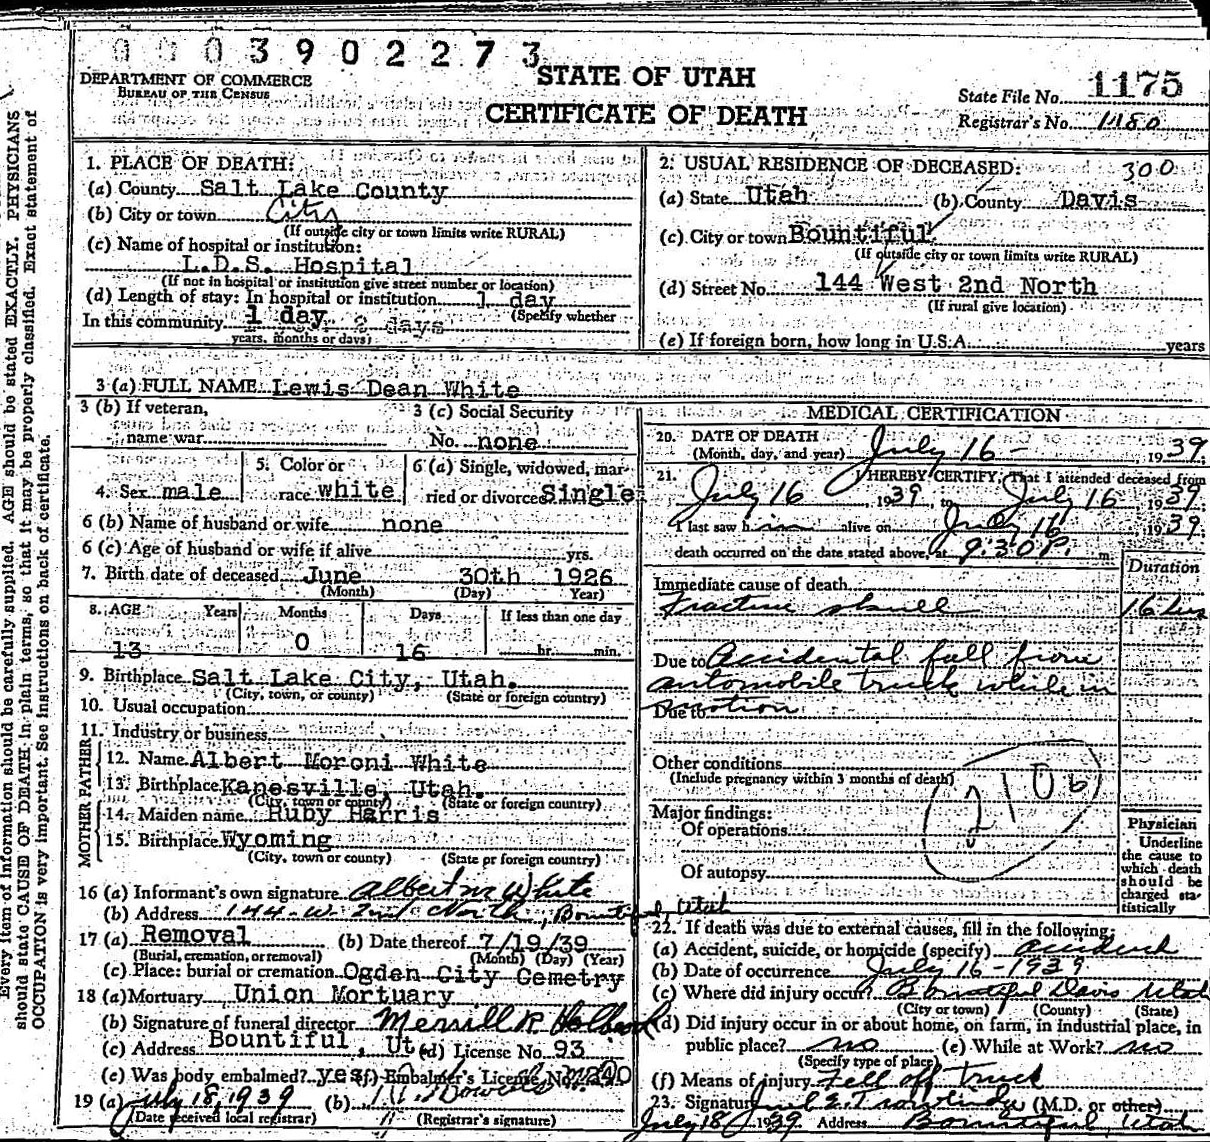 0003902273
DEPARTMENT OF COMMERCE
BUREAU OF THE CENSUS
STATE OF UTAH
CERTIFICATE OF DEATH
State File No. 1175
Registrar's No. 1180
1. PLACE OF DEATH:
(a) County Salt Lake County
(b) City or town City
(If outside city or town limits write RURAL)
(c) Name of hospital or institution:
L.D.S. Hospital
(If not in hospital or institution give street number or location)
(d) Length of stay: In hospital or institution 1 day
(Specify whether
In this community 1 day 2 days
years, months or days)
2. USUAL RESIDENCE OF DECEASED: 300
(a) State Utah (b) County Davis
(c) City or town Bountiful
(If outside city or town limits write RURAL)
(d) Street No. 144 West 2nd North
(If rural give location)
(e) If foreign born, how long in U.S.A. years
3 (a) FULL NAME Lewis Dean White
3 (b) If veteran,
name war
3 (c) Social Security
No. none
4. Sex male
5. Color or
race white
6 (a) Single, widowed, mar-
ried or divorced Single
6 (b) Name of husband or wife none
6 (c) Age of husband or wife if alive yrs.
7. Birth date of deceased June 30th 1926
(Month) (Day) Year)
8. AGE Years Months Days If less than one day
13 0 16 hr. min.
9. Birthplace Salt Lake City, Utah.
(City, town, or county) (State or foreign country)
10. Usual occupation
11. Industry or business
FATHER
12. Name Albert Moroni White
13. Birthplace Kanesville, Utah.
(City, town or county) (State or foreign country)
MOTHER
14. Maiden name Ruby Harris
15. Birthplace Wyoming
(City, town or county) (State or foreign country)
16 (a) Informant's own signature Albert M White
(b) Address 144-W-2nd North, Bountiful, Utah
17 (a) Removal (b) Date thereof 7/19/39
(Burial, cremation, or removal) (Month) (Day) (Year)
(c) Place: burial or cremation Ogden City Cemetry
18 (a) Mortuary Union Mortuary
(b) Signature of funeral director Merrill R. Holbrook
(c) Address Bountiful, Ut. (d) License No. 93
(e) Was body embalmed? yes (f) Embalmer's License No. 240
19 (a) July 18, 1939 (b)
(Date received local registrar) (Registrar's signature)
MEDICAL CERTIFICATION
20. DATE OF DEATH
(Month, day, and year) July 16 - 1939
21. I HEREBY CERTIFY, That I attended deceased from
July 16, 1939, to July 16, 1939
I last saw him alive on July 16 1939.
death occurred on the date stated above, at 9:30 P. m.
Duration
Immediate cause of death
Fracture skull 16 hrs
Due to Accidental fall from
automobile truck while in
Due to motion
Other conditions
(Include pregnancy within 3 months of death)
210b
Major findings:
Of operations
Of autopsy
Physician
Underline
the cause to
which death
should be
charged sta-
tistically
22. If death was due to external causes, fill in the following:
(a) Accident, suicide, or homicide (specify) accident
(b) Date of occurrence July 16 - 1939
(c) Where did injury occur? Bountiful Davis Utah
(City or town) (County) (State)
(d) Did injury occur in or about home, on farm, in industrial place, in
public place? no (e) While at Work? no
(Specify type of place)
(f) Means of injury Fell off truck
23. Signature (M.D. or other)
July 18, 1939. Address Bountiful, Utah
Every item of information should be carefully supplied. AGE should be stated EXACTLY. PHYSICIANS
should state CAUSE OF DEATH in plain terms, so that it may be properly classified. Exact statement of
OCCUPATION is very important. See instructions on back of certificate.